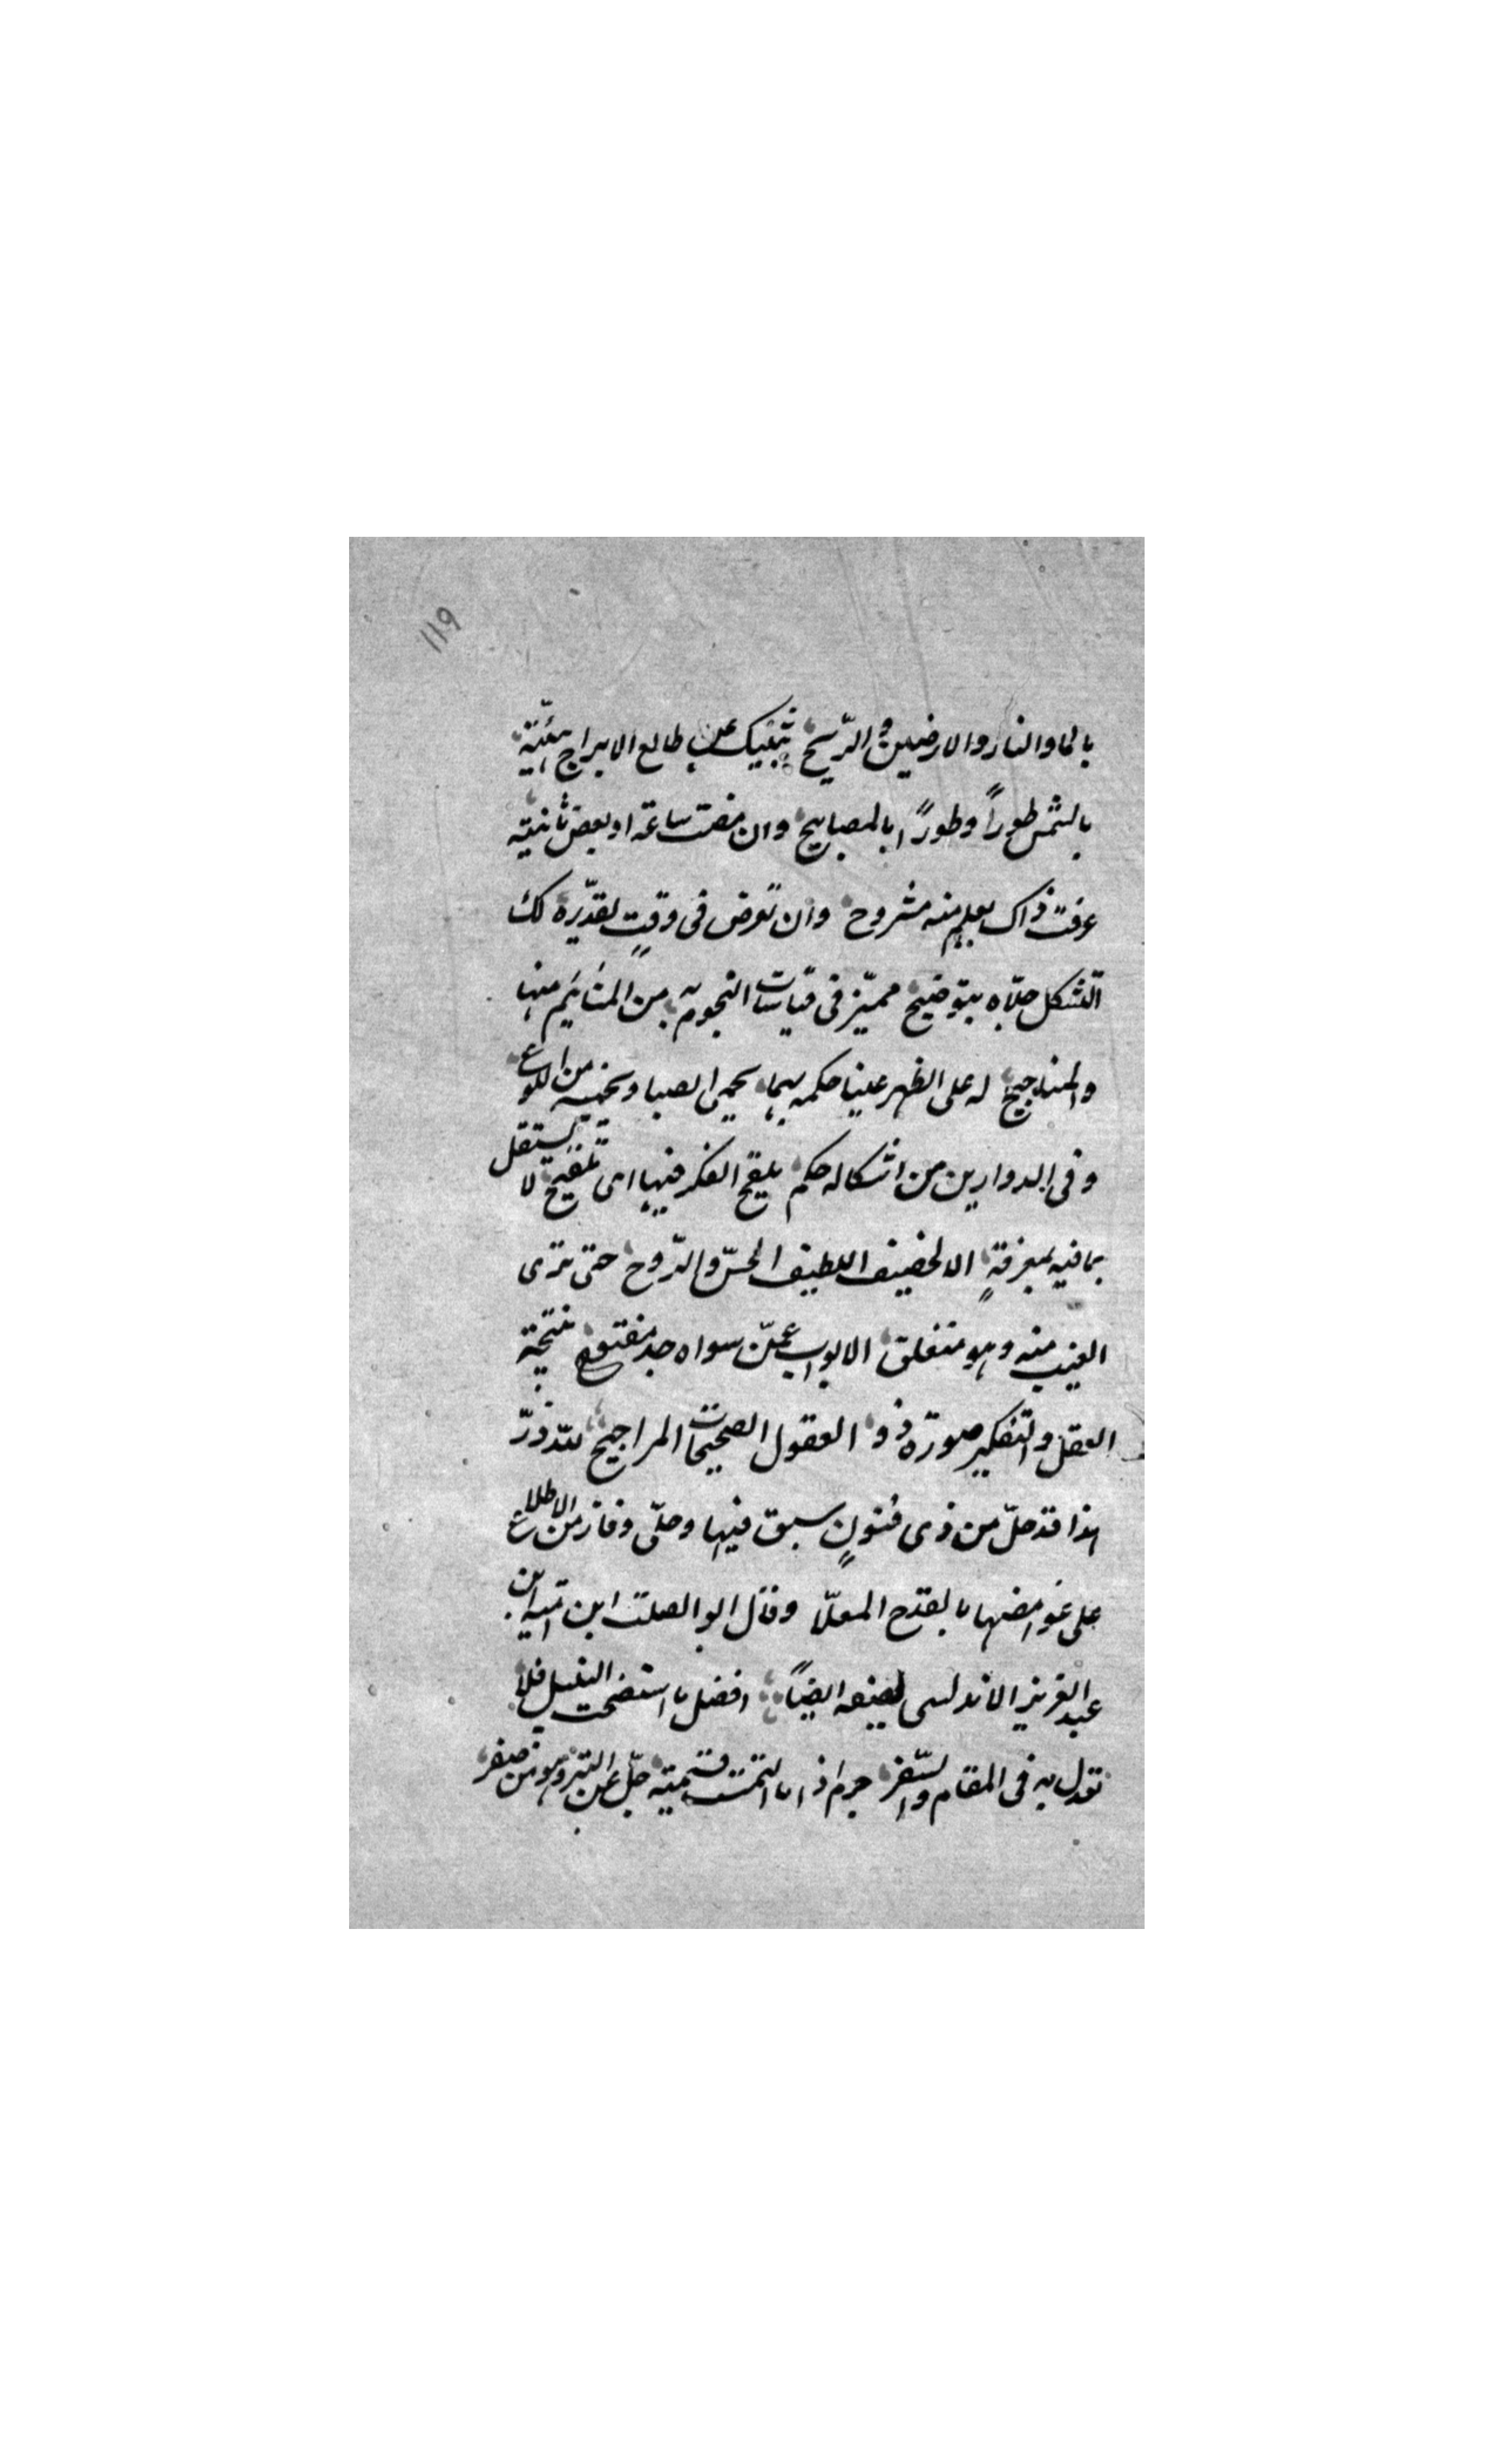 ١١٩
بالما والنار والارضين والرّيح تنبيك عن طالع الابراج هيئته
بالشمس طوراً وطوراً بالمصابيح وان مضت ساعة او بعض ثانية
عرفت ذاك بعلم منه مشروح وان تعرض فى وقتٍ يقدّره لك
التشكل جلّاه بتوضيح مميّز فى قياسات النجوم به بين المشائيم منها
والمناجيح له على الظهر عينا حكمه بهما يحمى الصبا وتحميه من اللوح
وفى الدوارين من اشكاله حكم يلقح الفكر فيها اى تلقيح لا يستقل
بما فيه بمعرفةٍ الا الحصيف اللطيف الحسّ والرّوح حتى ترى
الغيب منه وهو منغلق الابواب عمّن سواه جد مفتوح نتيجة
العقل والتفكير صوره ذوو العقول الصحيحات المراجيح لله درّ
هذا قد حلّ من ذى فنونٍ سبق فيها وجلّى وفاز من الاطلاع
على غوامضها بالقدح المعلّا وقال ابو الصلت ابن اميه ابن
عبد العزيز الاندلسى يصفه ايضاً افضل ما استصحب النبيل فلا
تعدل به فى المقام والسّفر جرم اذا ما التمست قيمته جلّ عن التبر وهو من صفر